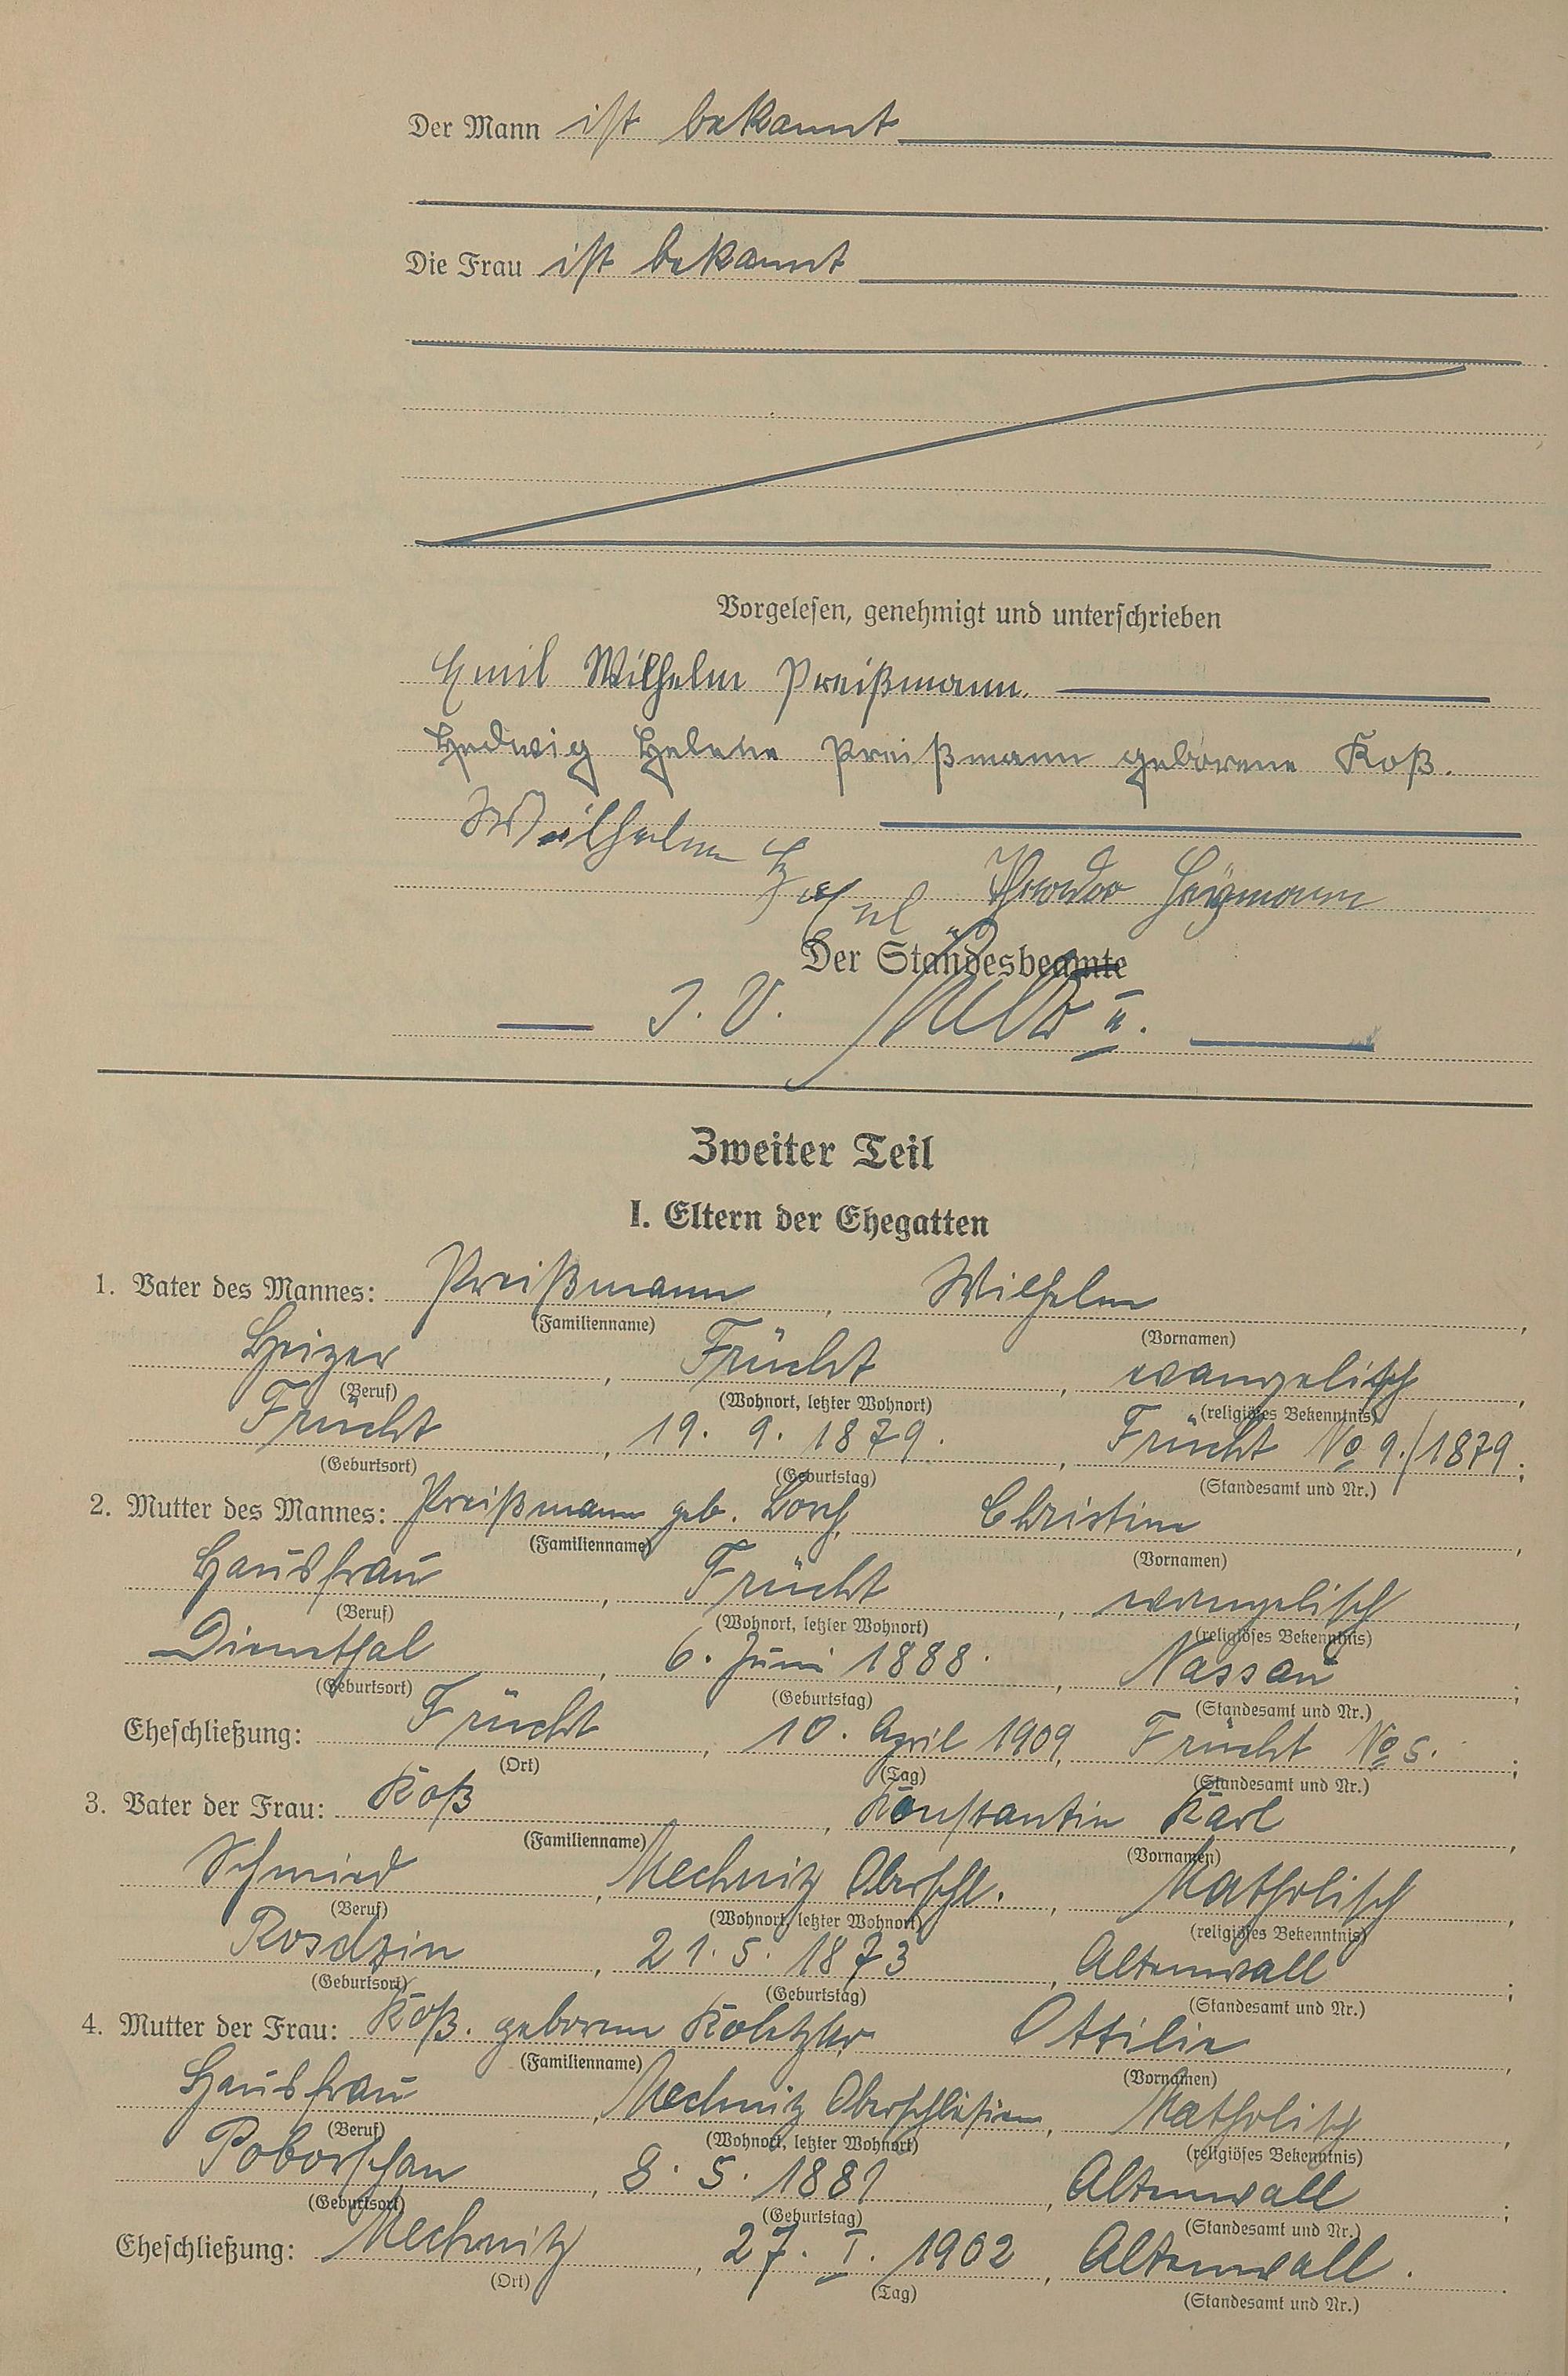 Der Mann ist bekannt
Die Frau ist bekannt
Vorgelesen, genehmigt und unterschrieben
Emil Wilhelm Preißmann.
Hedwig Helene Preißmann geborene Koß.
Wilhelm
Theodor Heymann
Der Standesbeamte
I. V.
Zweiter Teil
I. Eltern der Ehegatten
1. Vater des Mannes: Preißmann, Wilhelm,
(Familienname) (Vornamen)
Heizer, Frücht, evangelisch,
(Beruf) (Wohnort, letzter Wohnort) (religiöses Bekenntnis)
Frücht, 19. 9. 1879., Frücht No 9./1879;
(Geburtsort) (Geburtstag) (Standesamt und Nr.)
2. Mutter des Mannes: Preißmann geb. Lorch, Christine,
(Familienname) (Vornamen)
Hausfrau, Frücht, evangelisch,
(Beruf) (Wohnort, letzter Wohnort) (religiöses Bekenntnis)
Dienethal, 6. Juni 1888., Nassau;
(Geburtsort) (Geburtstag) (Standesamt und Nr.)
Eheschließung: Frücht, 10. April 1909, Frücht No 5.;
(Ort) (Tag) (Standesamt und Nr.)
3. Vater der Frau: Koß, Konstantin Karl,
(Familienname) (Vornamen)
Schmied, Mechnitz Oberschl., Katholisch,
(Beruf) (Wohnort, letzter Wohnort) (religiöses Bekenntnis)
Rosdzin, 21. 5. 1873, Altenwall;
(Geburtsort) (Geburtstag) (Standesamt und Nr.)
4. Mutter der Frau: Koß. geborene Ottilie,
(Familienname) (Vornamen)
Hausfrau, Mechnitz Oberschlesien, Katholisch,
(Beruf) (Wohnort, letzter Wohnort) (religiöses Bekenntnis)
Poborschau, 8. 5. 1881, Altenwall;
(Geburtsort) (Geburtstag) (Standesamt und Nr.)
Eheschließung: Mechnitz, 27. I. 1902, Altenwall.
(Ort) (Tag) (Standesamt und Nr.)